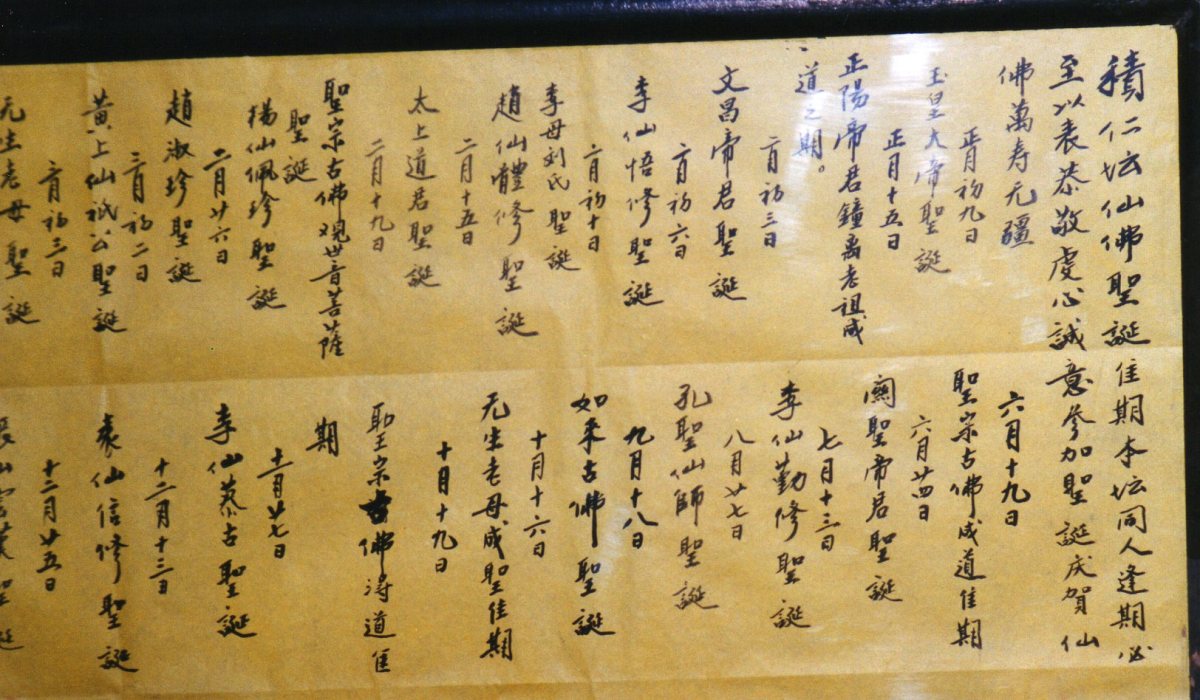 積仁坛仙佛聖誕佳期本坛同人逢期必
至以表恭敬虔心誠意參加聖誕庆賀仙
佛萬寿无疆
正月初九日
玉皇大帝聖誕
正月十五日
正陽帝君鐘离老祖成
道之期。
二月初三日
文昌帝君聖誕
二月初六日
李仙悟修聖誕
二月初十日
李母刘氏聖誕
趙仙體修聖誕
二月十五日
太上道君聖誕
二月十九日
聖宗古佛观世音菩薩
聖誕
楊仙佩珍聖誕
二月廿六日
趙淑珍聖誕
三月初二日
黄上仙祇公聖誕
三月初三日
无生老母聖誕
六月十九日
聖宗古佛成道佳期
六月廿四日
関聖帝君聖誕
七月十三日
李仙勤修聖誕
八月廿七日
孔聖仙師聖誕
九月十八日
如来古佛聖誕
十月十六日
无生老母成聖佳期
十月十九日
聖宗古佛得道佳
期
十一月廿七日
李仙蔡古聖誕
十二月十三日
袁仙信修聖誕
十二月廿五日
聖誕